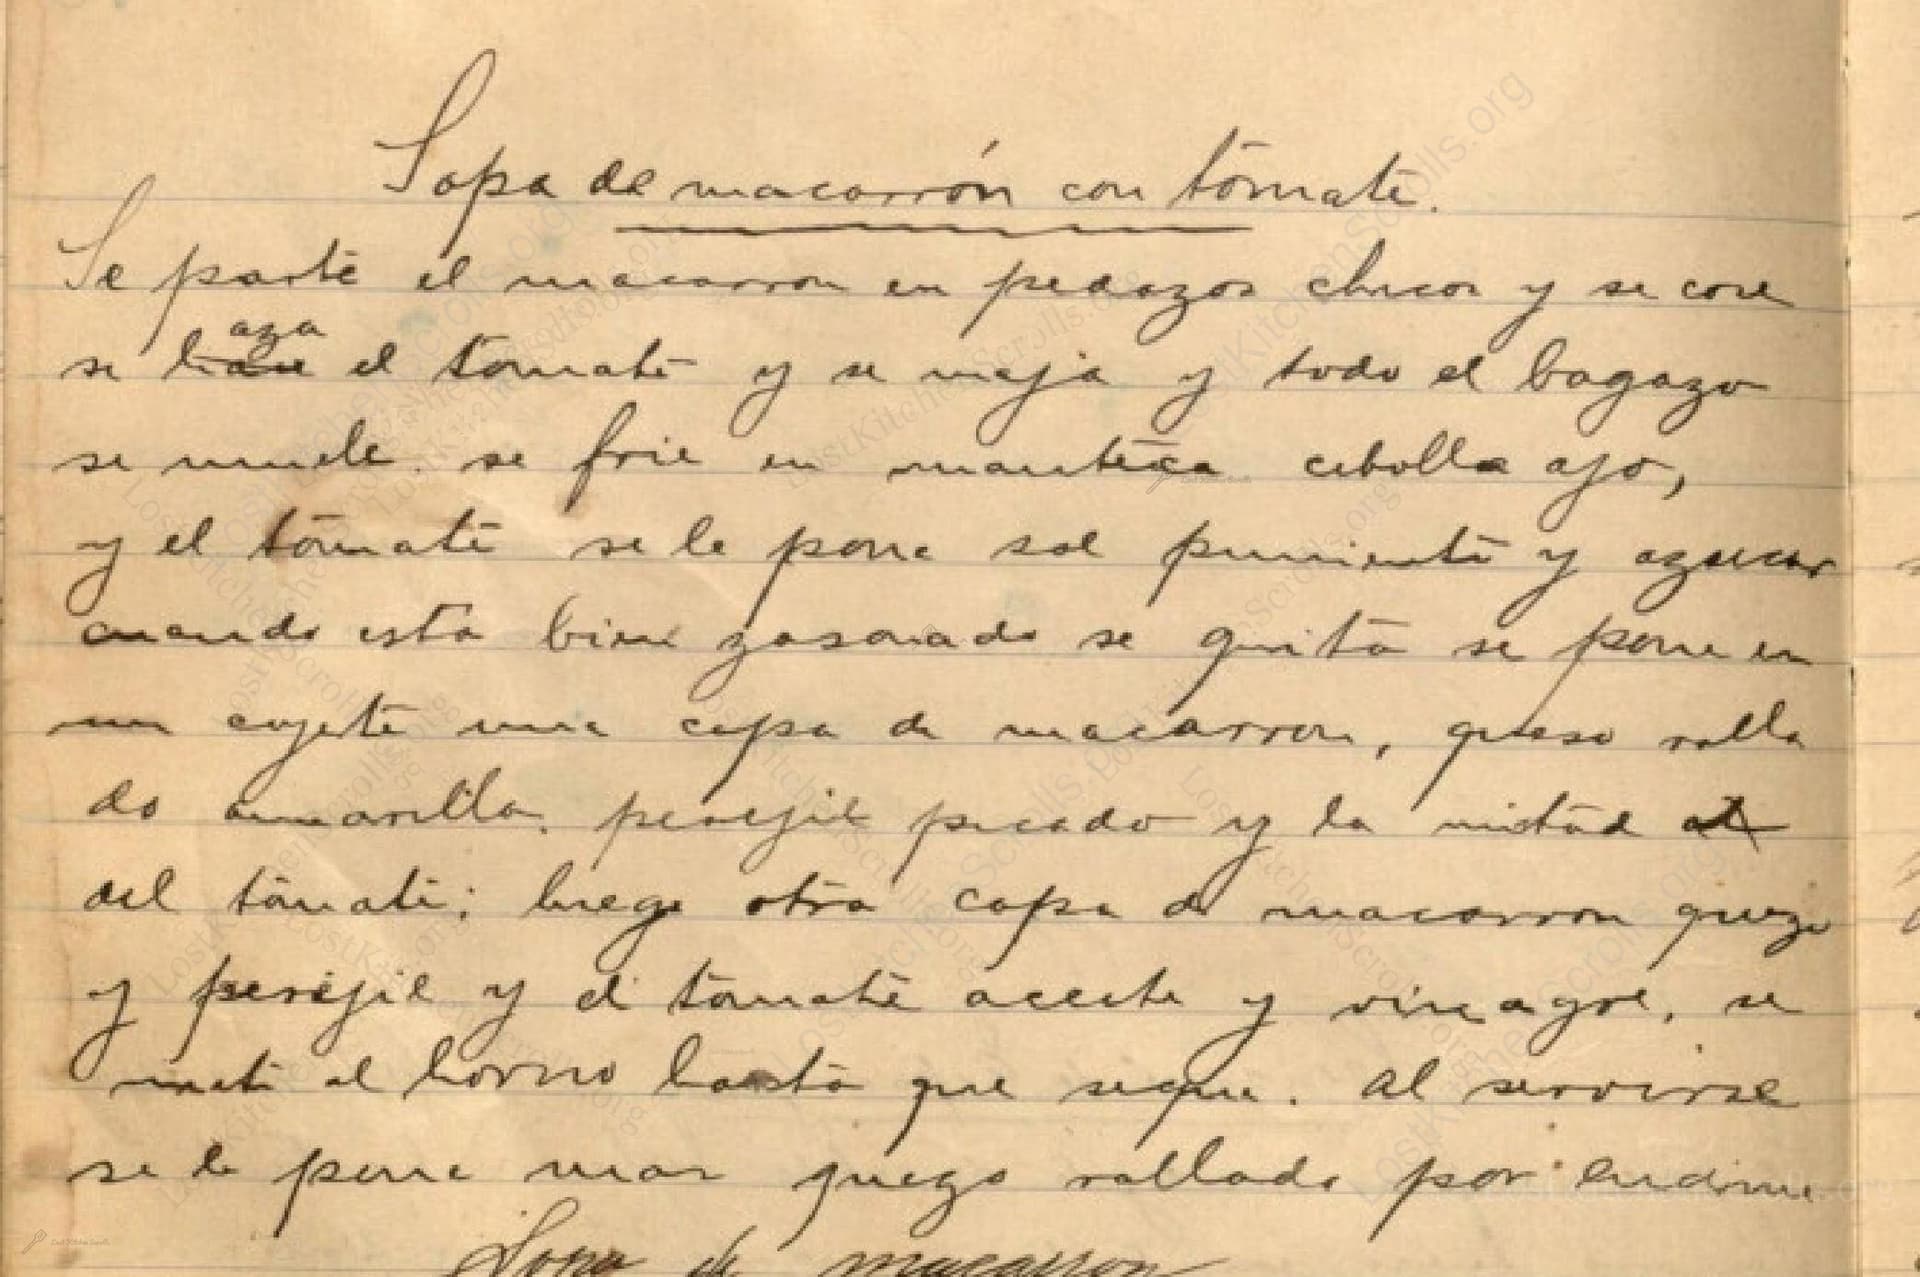 Sopa de macarrón con tomate.
Se parte el macarron en pedazos chicos y se cose
aza
se el tomate y se maja y todo el bagazo
se muele. se frie en manteca cebolla ajo,
y el tomate se le pone sal pimienta y azucar
cuando esta bien zasonado se quita se pone en
un una capa de macarron, queso ralla
do amarillo. perejil picado y la mitad
del tomate; luego otra capa de macarron quezo
y perejil y el tomate aceite y vinagre, se
mete al horno hasta que seque. Al servirse
se le pone mas quezo rallado por encima
Sopa de macarron
LostKitchenScrolls.org